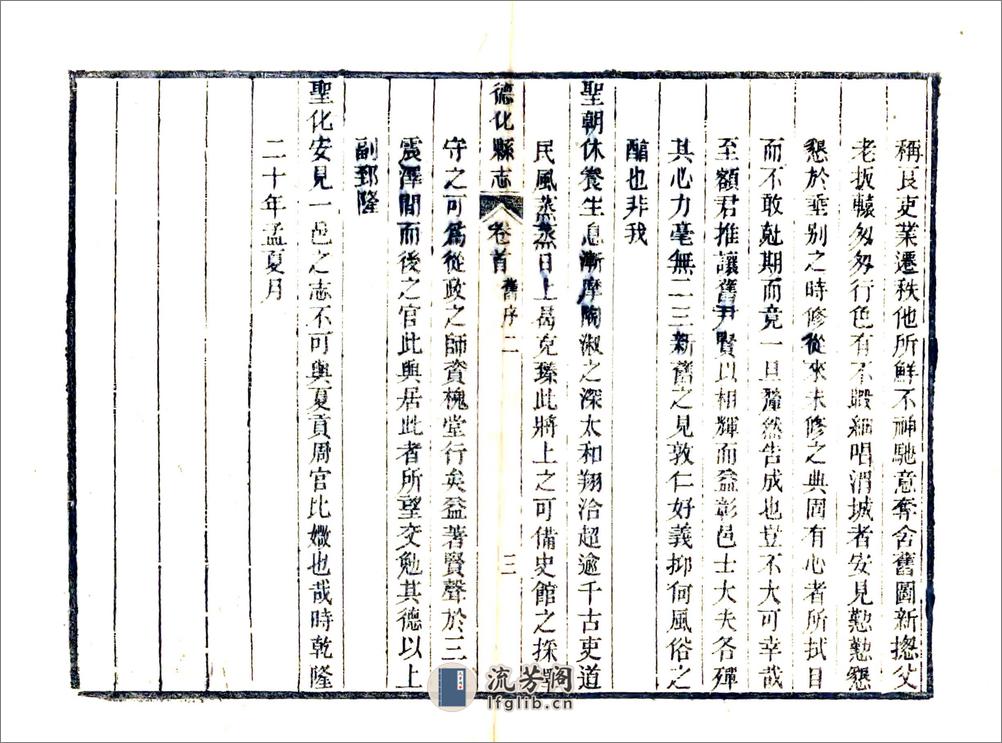 稱良吏業遷秩他所鮮不神馳意奪舍舊圖新揔父
老扳轅匆匆行色有不暇細唱渭城者安見懃懃懇
懇於臨別之時修從來未修之典固有心者所拭目
而不敢尅期而竟一旦犛然告成也豈不大可幸哉
至額君推讓舊尹賢以相輝而益彰邑士大夫各殫
其心力毫無二三新舊之見敦仁好義抑何風俗之
醕也非我
聖朝休養生息漸摩陶淑之深太和翔洽超逾千古吏道
民風蒸蒸日上曷克臻此將上之可備史館之採
德化縣志
卷首
舊序二
三
守之可為從政之師資槐堂行矣益著賢聲於三
震澤間而後之官此與居此者所望交勉其德以上
副郅隆
聖化安見一邑之志不可與夏貢周官比媺也哉時乾隆
二十年孟夏月
流芳阁
lfglib.cn